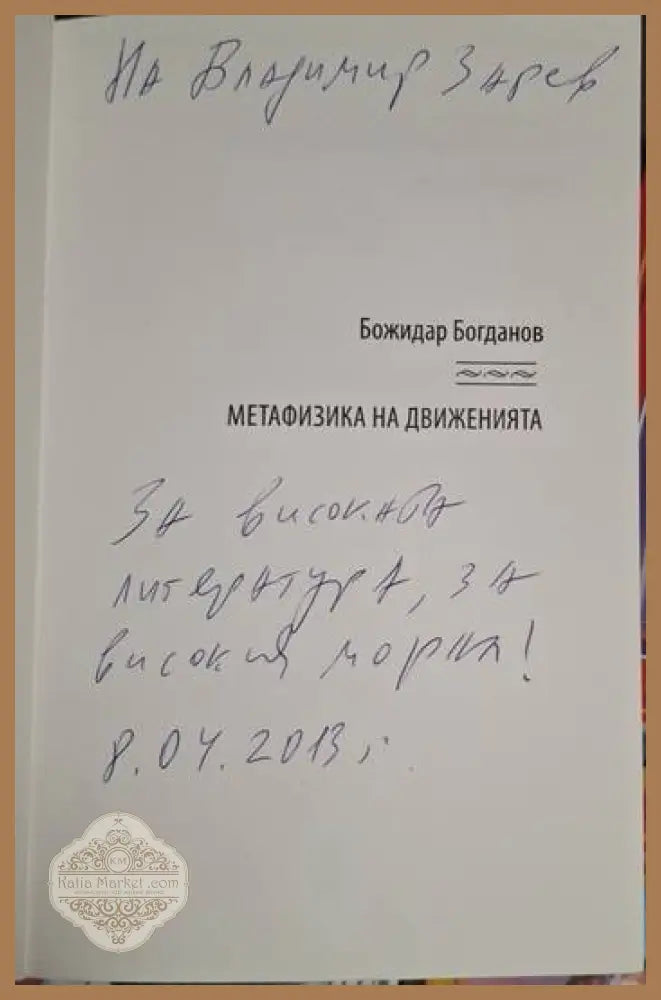 На Владимир Зарев
Божидар Богданов
МЕТАФИЗИКА НА ДВИЖЕНИЯТА
За високата
литература, за
високия морал!
8.04.2013 г.
KM
Katia Market .com